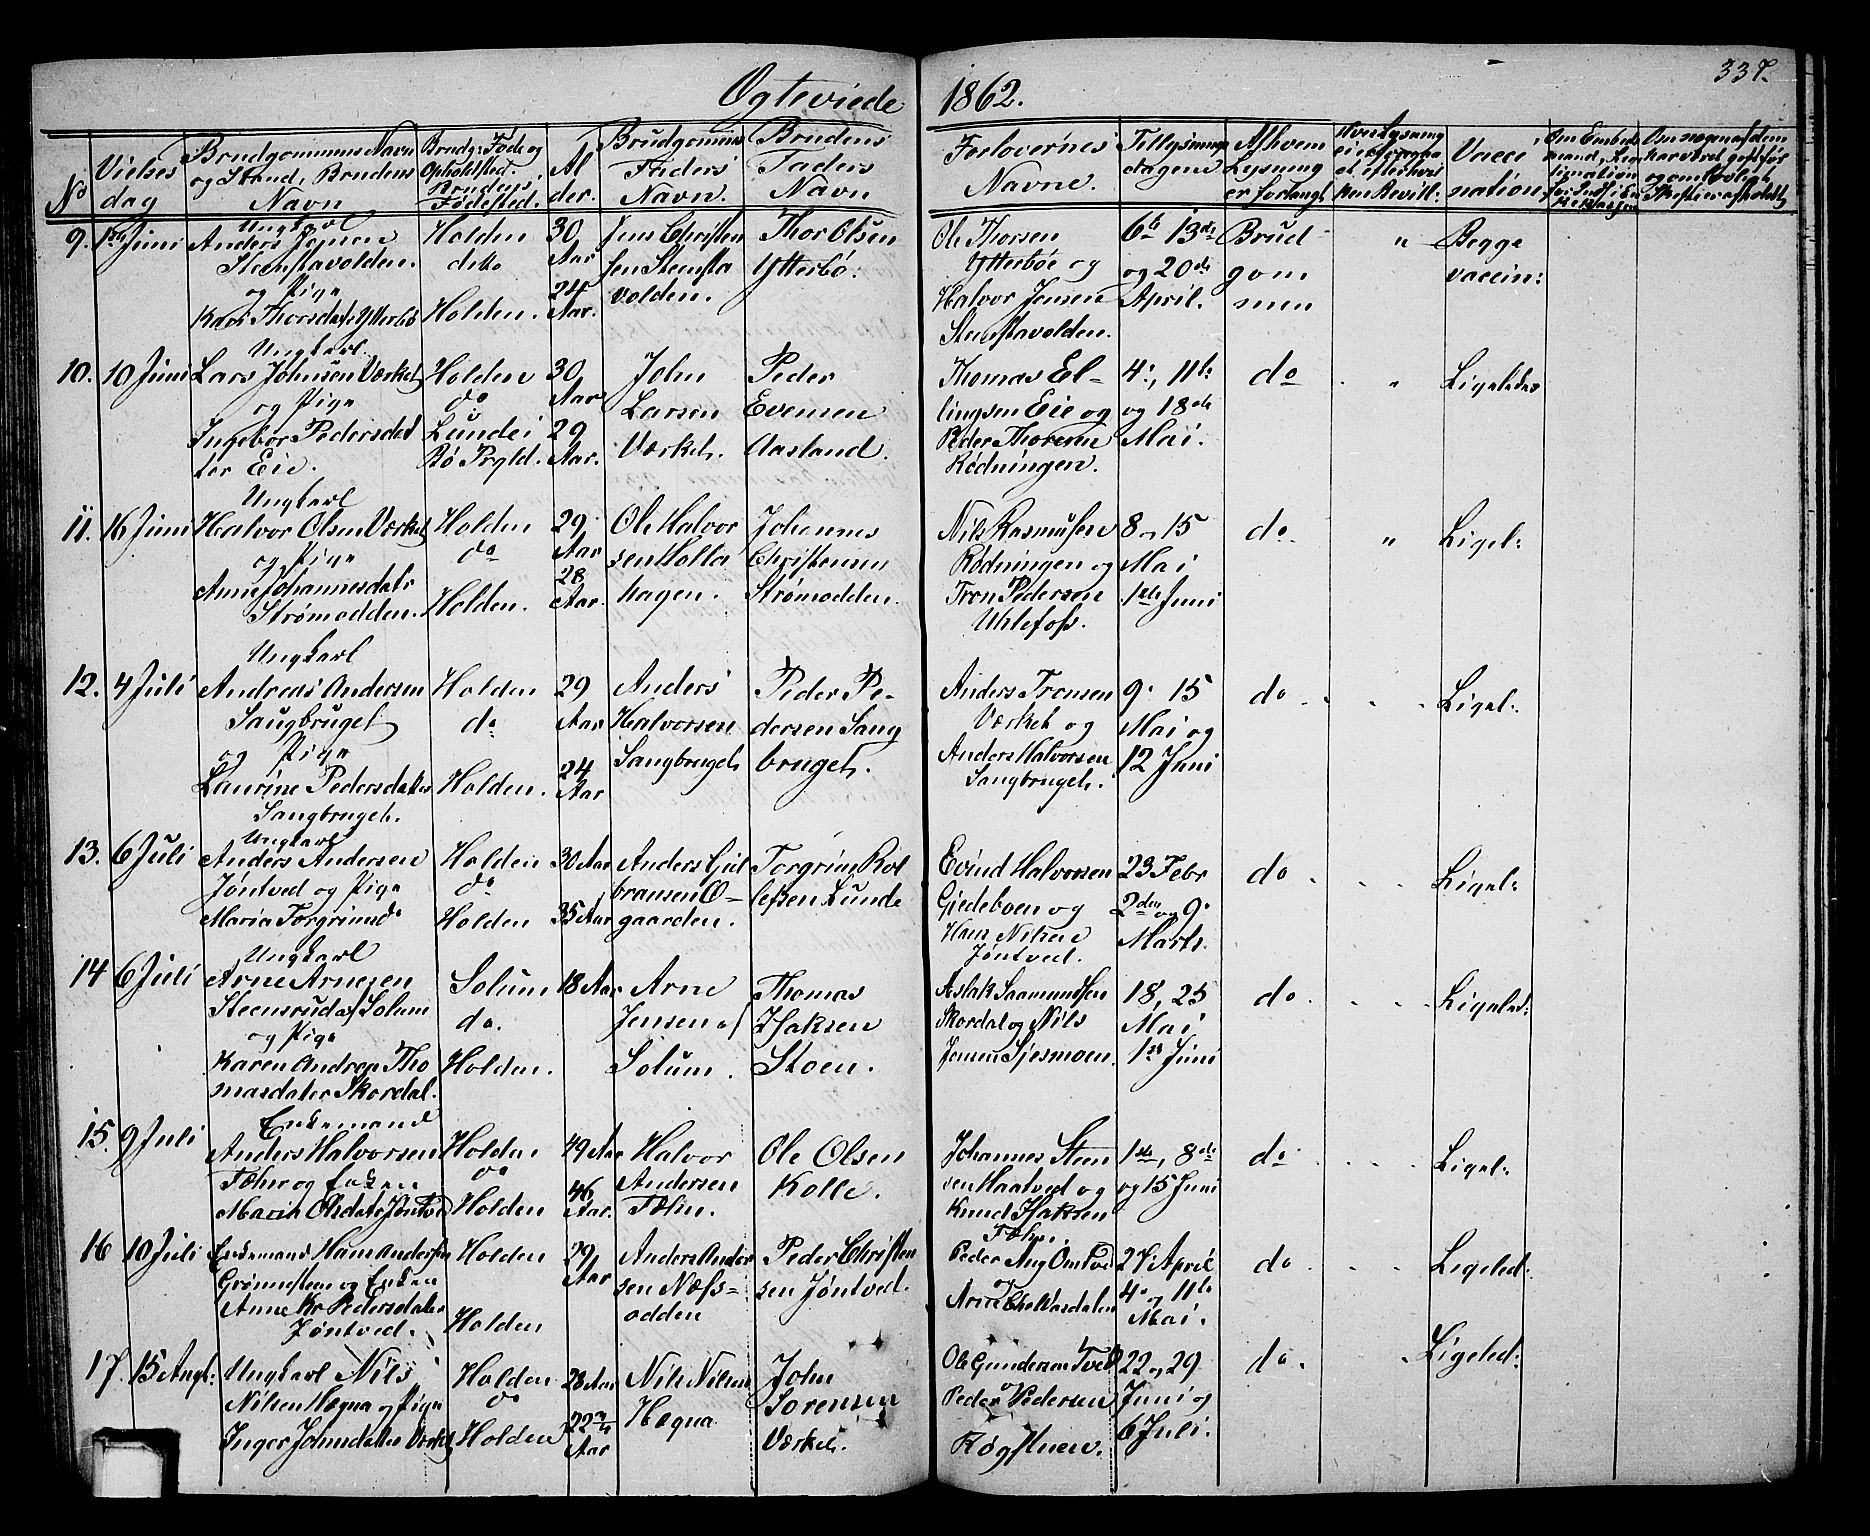 Ogteviede 1862.
337.
No
Vielses dag
Brudgommens Navn og Stand, Brudens Navn
Brudg: Føde og Opholdsted. Brudens Fødested.
Al der.
Brudgommens Faders Navn.
Brudens Faders Navn
Forlovernes Navne.
Tillysnings dagene
Af hvem Lysning er forlangt
Vacci nation
9. 1ste Juni
Ungkarl
Anders Jensen
Steenstavolden.
og Pige
Kari Thorsdatr Ytterbö
Holden
dito
Holden.
30 Aar
24 Aar.
Jens Christen
sen Steensta
volden.
Thor Olsen
Ytterbö.
Ole Thorsen
Ytterböe og
Halvor Jensen
Stenstavolden.
6te 13de
og 20de
April.
Brud
gom
men
"
Begge
vaccin:
10. 10 Juni
Ungkarl
Lars Johnsen Værket
og Pige
Ingebor Pedersdat
ter Eie.
Holden
do
Lunde i
Bö Prgld.
30 Aar
29 Aar.
John
Larsen
Værket.
Peder
Evensen
Aasland.
Thomas El-
lingsen Eie og
Peder Thoresen
Rödningen.
4., 11te
og 18de
Mai.
do
"
Ligeledes
11. 16 Juni
Ungkarl
Halvor Olsen Værket
og Pige
Anne Johannesdatr
Strømodden.
Holden
do
Holden.
29 Aar
28 Aar.
Ole Halvor
sen Holla
hagen.
Johannes
Christensen
Strømodden.
Nils Rasmussen
Rødningen og
Tron Pedersen
Uhlefoss.
8 og 15
Mai
1ste Juni
do.
"
Ligel:
12. 4 Juli
Ungkarl
Andreas Andersen
Saugbruget
og Pige
Laurine Pedersdatter
Saugbruget.
Holden
do
Holden.
29 Aar
24 Aar
Anders
Halvorsen
Saugbruget.
Peder Pe-
dersen Saug
bruget.
Anders Tronsen
Værket og
Anders Halvorsen
Saugbruget.
9. 15
Mai og
12 Juni
do
Ligel:
13. 6 Juli
Ungkarl
Anders Andersen
Jøntved og Pige
Maria Torgrimsd.
Holden
do
Holden
30 Aar
35 Aar
Anders Gul
bransen O-
gaarden.
Torgrim Rol
lefsen Lunde
Evind Halvorsen
Gjedeboen og
Hans Nilsen
Jøntved.
23 Febr
2den og 9.
Marts.
do
Ligel:
14 6 Juli
Ungkarl
Arne Arnesen
Steensrud af Solum
og Pige
Karen Andrea Tho
masdater Skordal.
Solum
do.
Holden.
18 Aar
Arne
Jensen af
Solum.
Thomas
Isaksen
Stoen.
Aslak Saamundsen
Skordal og Nils
Jensen Sjesmoen.
18, 25
Mai
1ste Juni
do
Ligeled:
15. 9 Juli
Enkemand
Anders Halvorsen
Fæhn og Enken
Maria Olsdatr Jøntved
Holden
do
Holden
49 Aar
46 Aar.
Halvor
Andersen
Fæhn.
Ole Olsen
Kolle.
Johannes Steen
sen Haatvet og
Knud Isaksen
Fæhn.
1ste, 8de
og 15 Juni
do
Ligel:
16 10 Juli
Enkemand Hans Andersen
Grønnesteen og Enken
Anne Kr Pedersdater
Jøntved.
Holden
Holden
29 Aar
Anders Ander
sen Næss-
odden
Peder Christen
sen Jøntved.
Peder Aug Omtved
og
27 April
4. og 11te
Mai.
do
Ligeled:
17. 15 Augt:
Ungkarl Nils
Nilsen Hægna og Pige
Inger Johnsdatter Værket
Holden
do
Holden
28 Aar
22 Aar
Nils Nilsen
Hægna
John
Sorensen
Værket.
Ole Gundersen Tved
Peder Pedersen
Røgstuen.
22 og 29
Juni og
6 Juli.
do.
Ligeled: